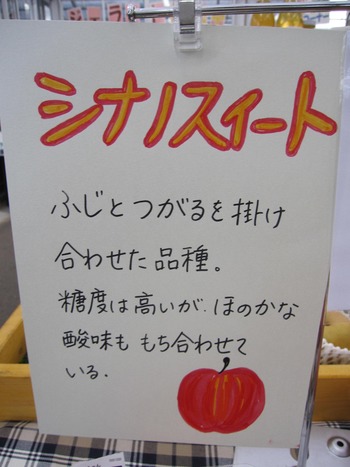 シナノスイート
ふじとつがるを掛け
合わせた品種。
糖度は高いが、ほのかな
酸味も もち合わせて
いる.